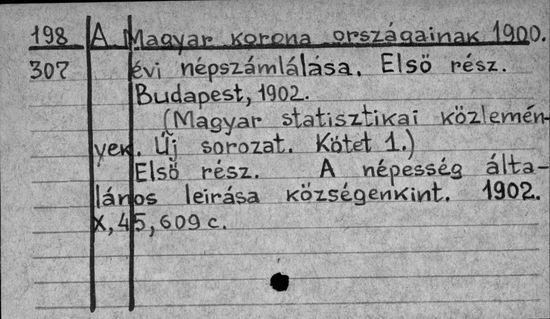 198 A Magyar korona országainak 1900.
307 évi népszámlálása. Első rész.
Budapest, 1902.
(Magyar statisztikai közlemén-
yek. Új sorozat. Kötet 1.)
Első rész. A népesség álta-
lános leirása községenkint. 1902.
X, 45, 609 c.